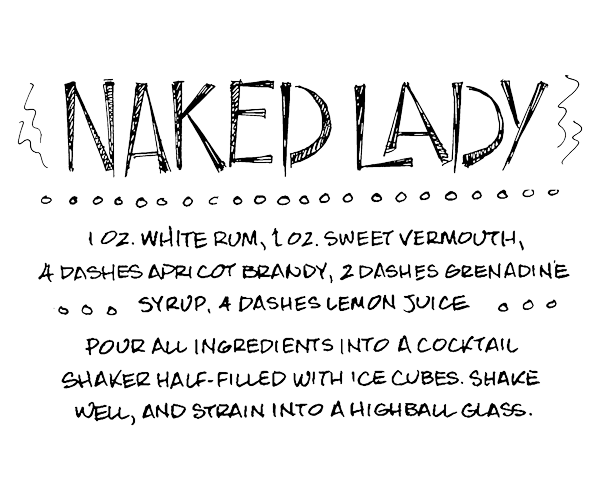 NAKED LADY
1 OZ. WHITE RUM, 1 OZ. SWEET VERMOUTH,
4 DASHES APRICOT BRANDY, 2 DASHES GRENADINE
SYRUP, 4 DASHES LEMON JUICE
POUR ALL INGREDIENTS INTO A COCKTAIL
SHAKER HALF-FILLED WITH ICE CUBES. SHAKE
WELL, AND STRAIN INTO A HIGHBALL GLASS.